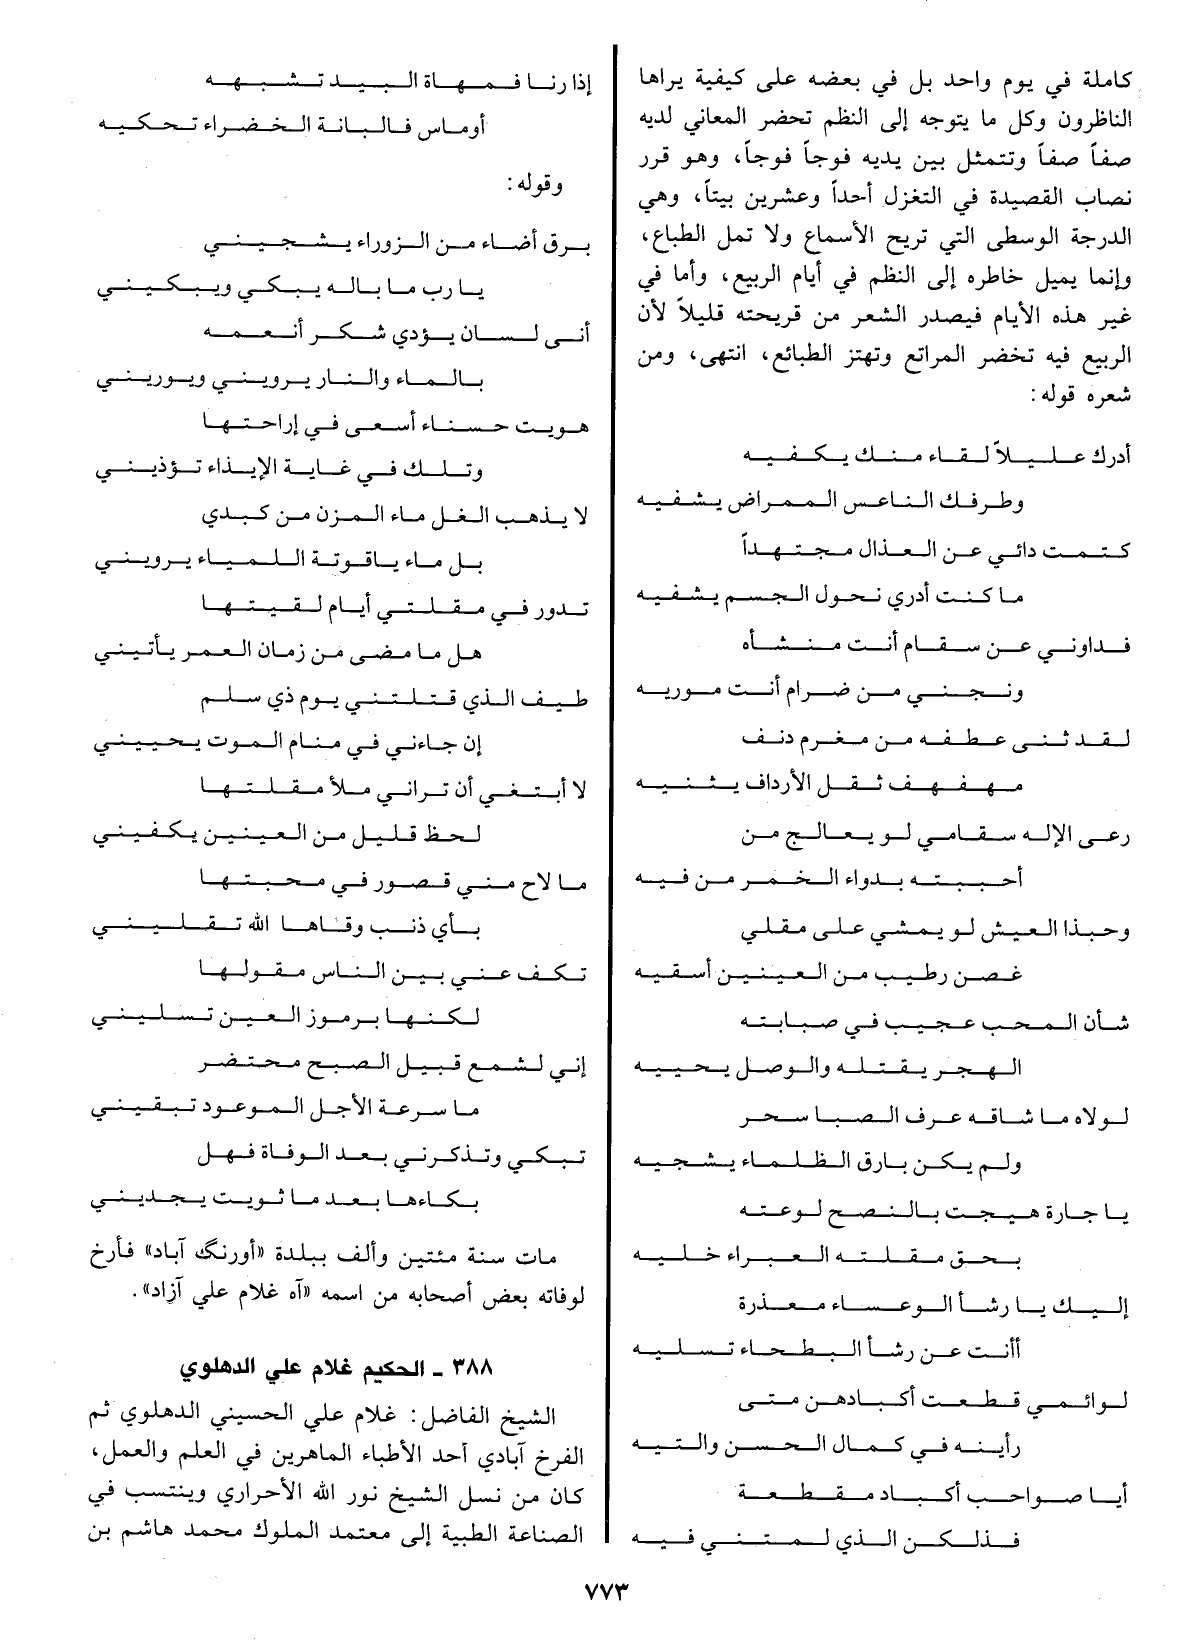 كاملة في يوم واحد بل في بعضه على كيفية يراها
الناظرون وكل ما يتوجه إلى النظم تحضر المعاني لديه
صفاً صفاً وتتمثل بين يديه فوجاً فوجاً، وهو قرر
نصاب القصيدة في التغزل أحداً وعشرين بيتاً، وهي
الدرجة الوسطى التي تريح الأسماع ولا تمل الطباع،
وإنما يميل خاطره إلى النظم في أيام الربيع، وأما في
غير هذه الأيام فيصدر الشعر من قريحته قليلاً لأن
الربيع فيه تخضر المراتع وتهتز الطبائع، انتهى، ومن
شعره قوله:
أدرك عليلاً لقاء منك يكفيه
وطرفك الناعس الممراض يشفيه
كتمت دائي عن العذال مجتهداً
ما كنت أدري نحول الجسم يشفيه
فداوني عن سقام أنت منشأه
ونجني من ضرام أنت موريه
لقد ثنى عطفه من مغرم دنف
مهفهف ثقل الأرداف يثنيه
رعى الإله سقامي لو يعالج من
أحببته بدواء الخمر من فيه
وحبذا العيش لو يمشي على مقلي
غصن رطيب من العينين أسقيه
شأن المحب عجيب في صبابته
الهجر يقتله والوصل يحييه
لولاه ما شاقه عرف الصبا سحر
ولم يكن بارق الظلماء يشجيه
يا جارة هيجت بالنصح لوعته
بحق مقلته العبراء خليه
إليك يا رشأ الوعساء معذرة
أأنت عن رشأ البطحاء تسليه
لوائمي قطعت أكبادهن متى
رأينه في كمال الحسن والتيه
أيا صواحب أكباد مقطعة
فذلكن الذي لمتنني فيه
إذا رنا فمهاة البيد تشبهه
أوماس فالبانة الخضراء تحكيه
وقوله:
برق أضاء من الزوراء يشجيني
يا رب ما باله يبكي ويبكيني
أنى لسان يؤدي شكر أنعمه
بالماء والنار يرويني ويوريني
هويت حسناء أسعى في إراحتها
وتلك في غاية الإيذاء تؤذيني
لا يذهب الغل ماء المزن من كبدي
بل ماء ياقوتة اللمياء يرويني
تدور في مقلتي أيام لقيتها
هل ما مضى من زمان العمر يأتيني
طيف الذي قتلتني يوم ذي سلم
إن جاءني في منام الموت يحييني
لا أبتغي أن تراني ملأ مقلتها
لحظ قليل من العينين يكفيني
ما لاح مني قصور في محبتها
بأي ذنب وقاها الله تقليني
تكف عني بين الناس مقولها
لكنها برموز العين تسليني
إني لشمع قبيل الصبح محتضر
ما سرعة الأجل الموعود تبقيني
تبكي وتذكرني بعد الوفاة فهل
بكاءها بعد ما ثويت يجديني
مات سنة مئتين وألف ببلدة «أورنگ آباد» فأرخ
لوفاته بعض أصحابه من اسمه «آه غلام علي آزاد».
٣٨٨ ـ الحكيم غلام علي الدهلوي
الشيخ الفاضل: غلام علي الحسيني الدهلوي ثم
الفرخ آبادي أحد الأطباء الماهرين في العلم والعمل،
كان من نسل الشيخ نور الله الأحراري وينتسب في
الصناعة الطبية إلى معتمد الملوك محمد هاشم بن
٧٧٣